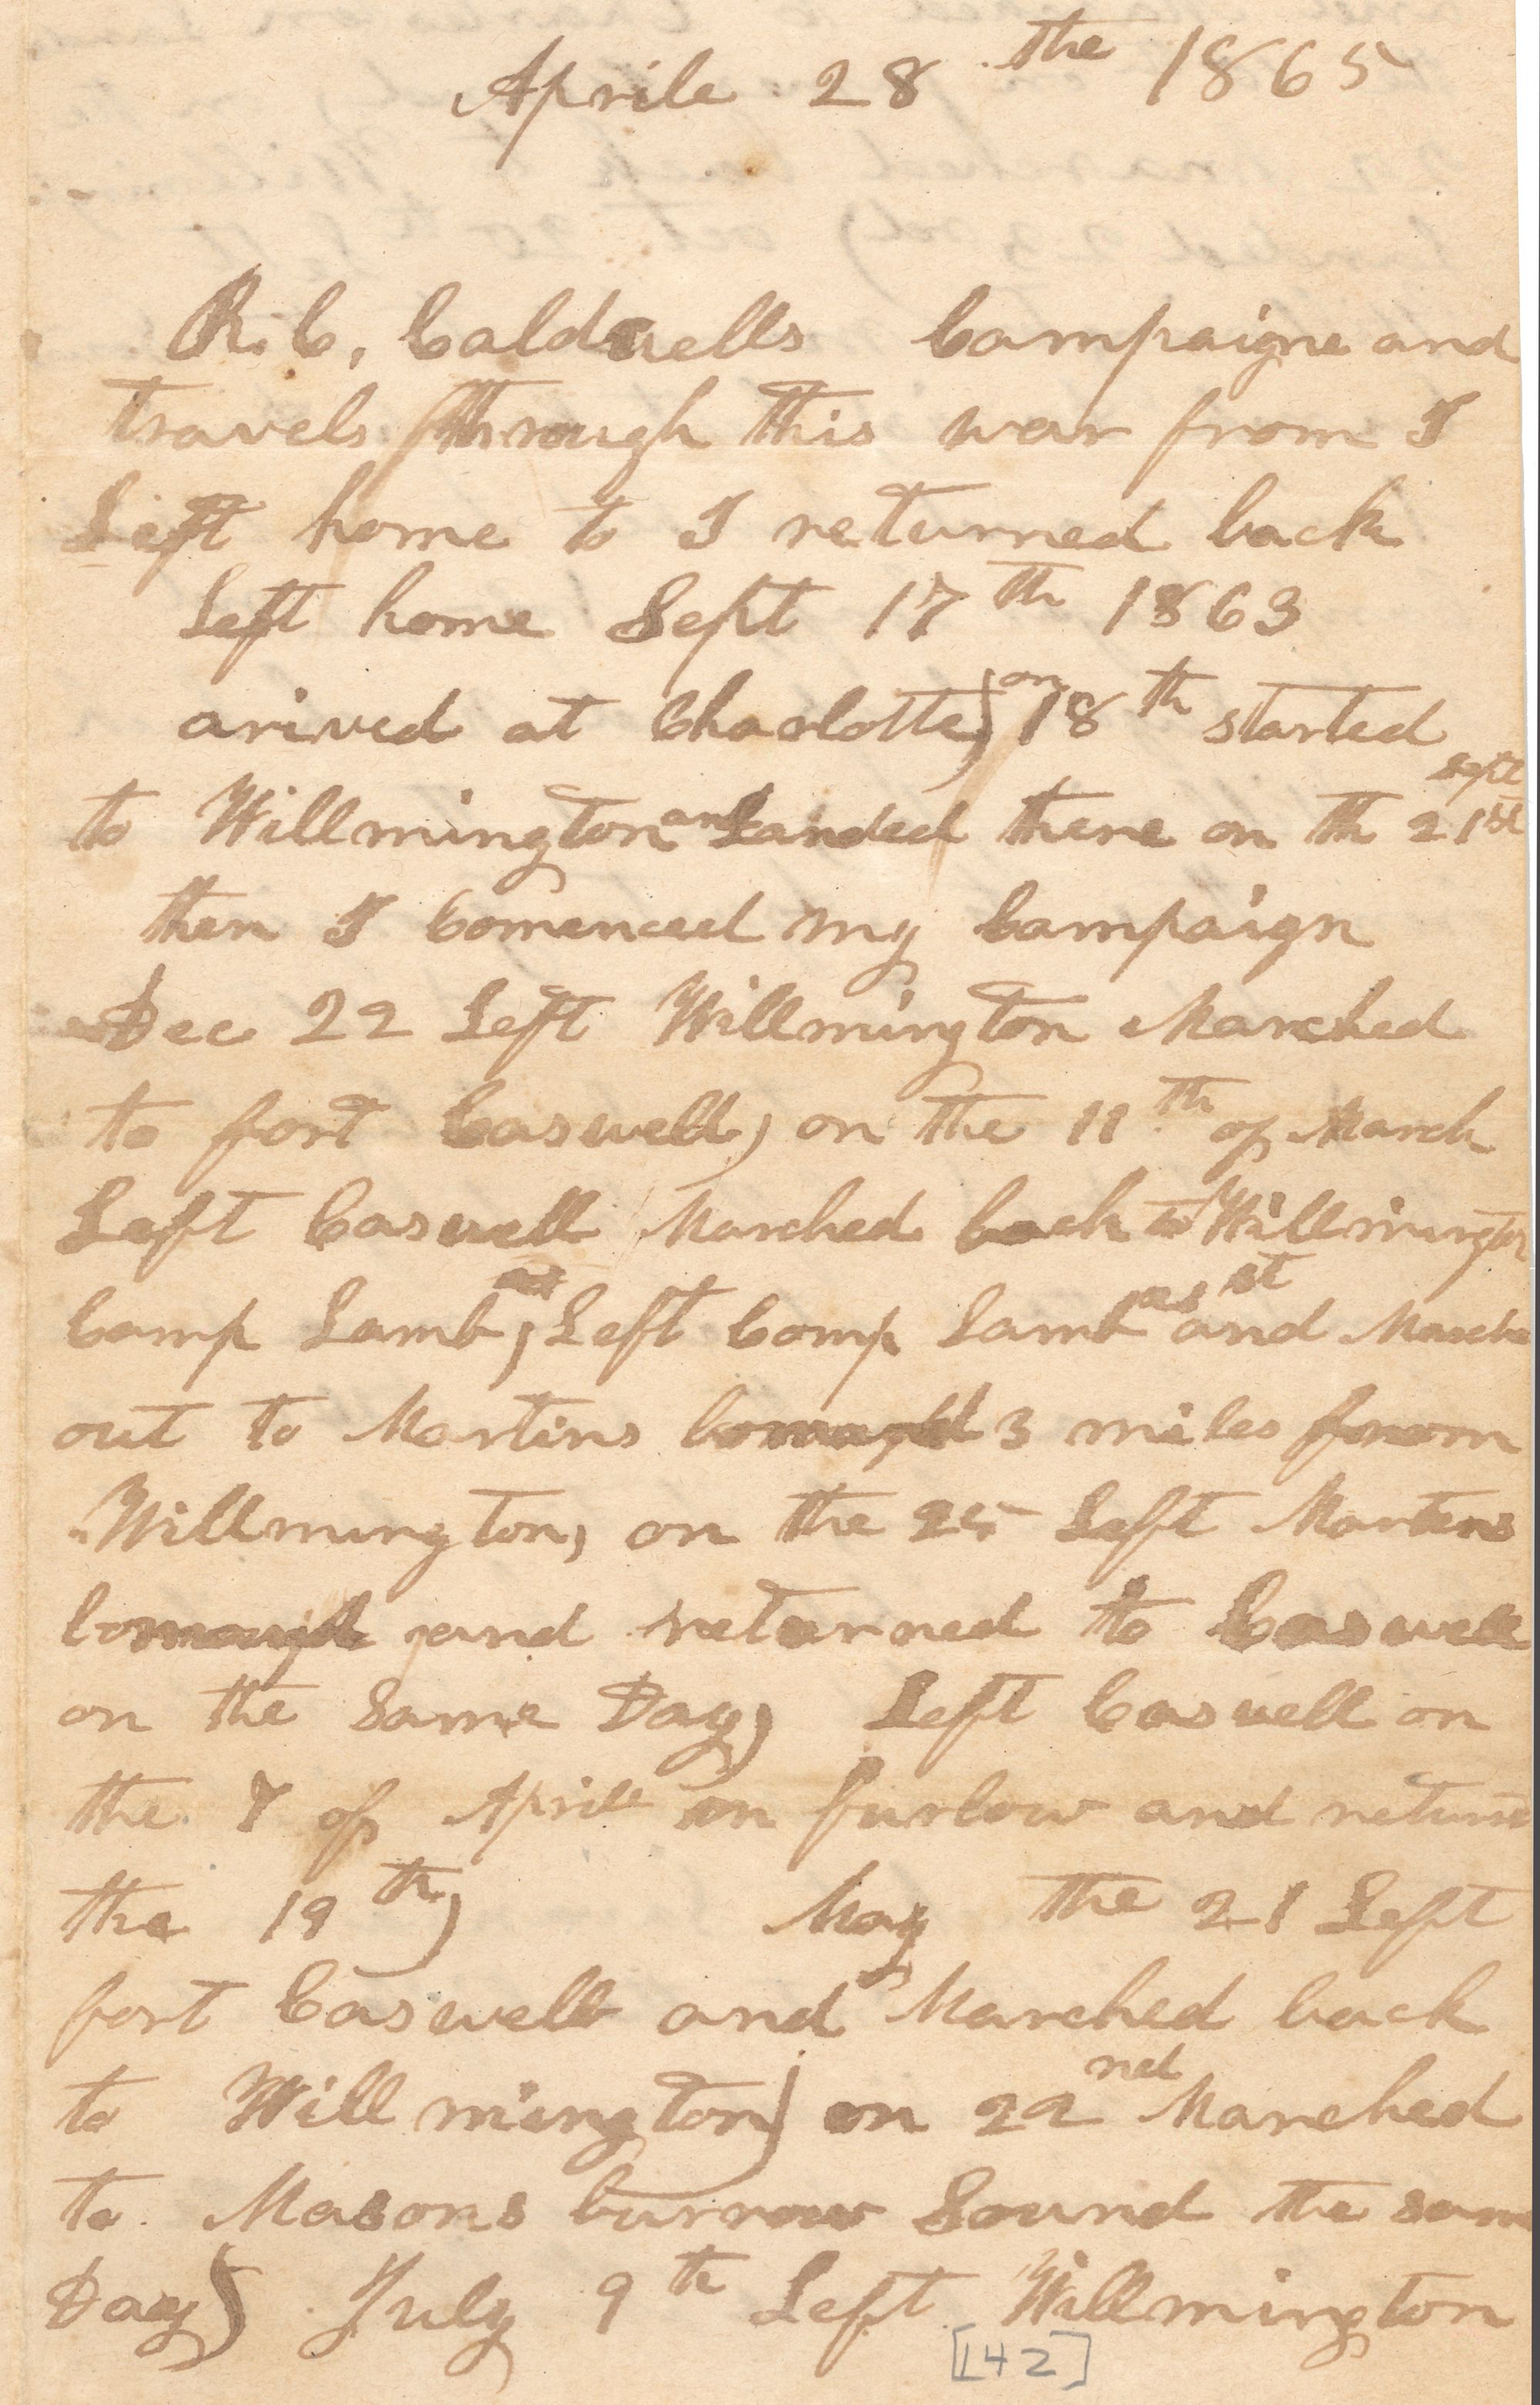 Aprile 28 the 1865
R. C, Caldwells Campaigne and
travels through this war from I
Left home to I returned back
Left home Sept 17th 1863
arived at Charlotte) on 18th started
to Willmington and Landed there on th 21st sept
then I Comenced my Campaign
Dec 22 Left Willmington Marched
to fort Caswell, on the 11th of March
Left Caswell Marched back to Willmington
Camp Lamb, Left Camp Lamb and Marche
out to Martins 3 miles from
Willmington, on the 25 Left Martens
and returned to Caswell
on the Same Day, Left Caswell on
the 7 of Aprile on furlow and return
the 19th) May the 21 Left
fort Caswell and Marched back
to Willmington) on 22nd Marched
to Masons burrow Sound the same
Day) July 9th Left Willmington
[142]